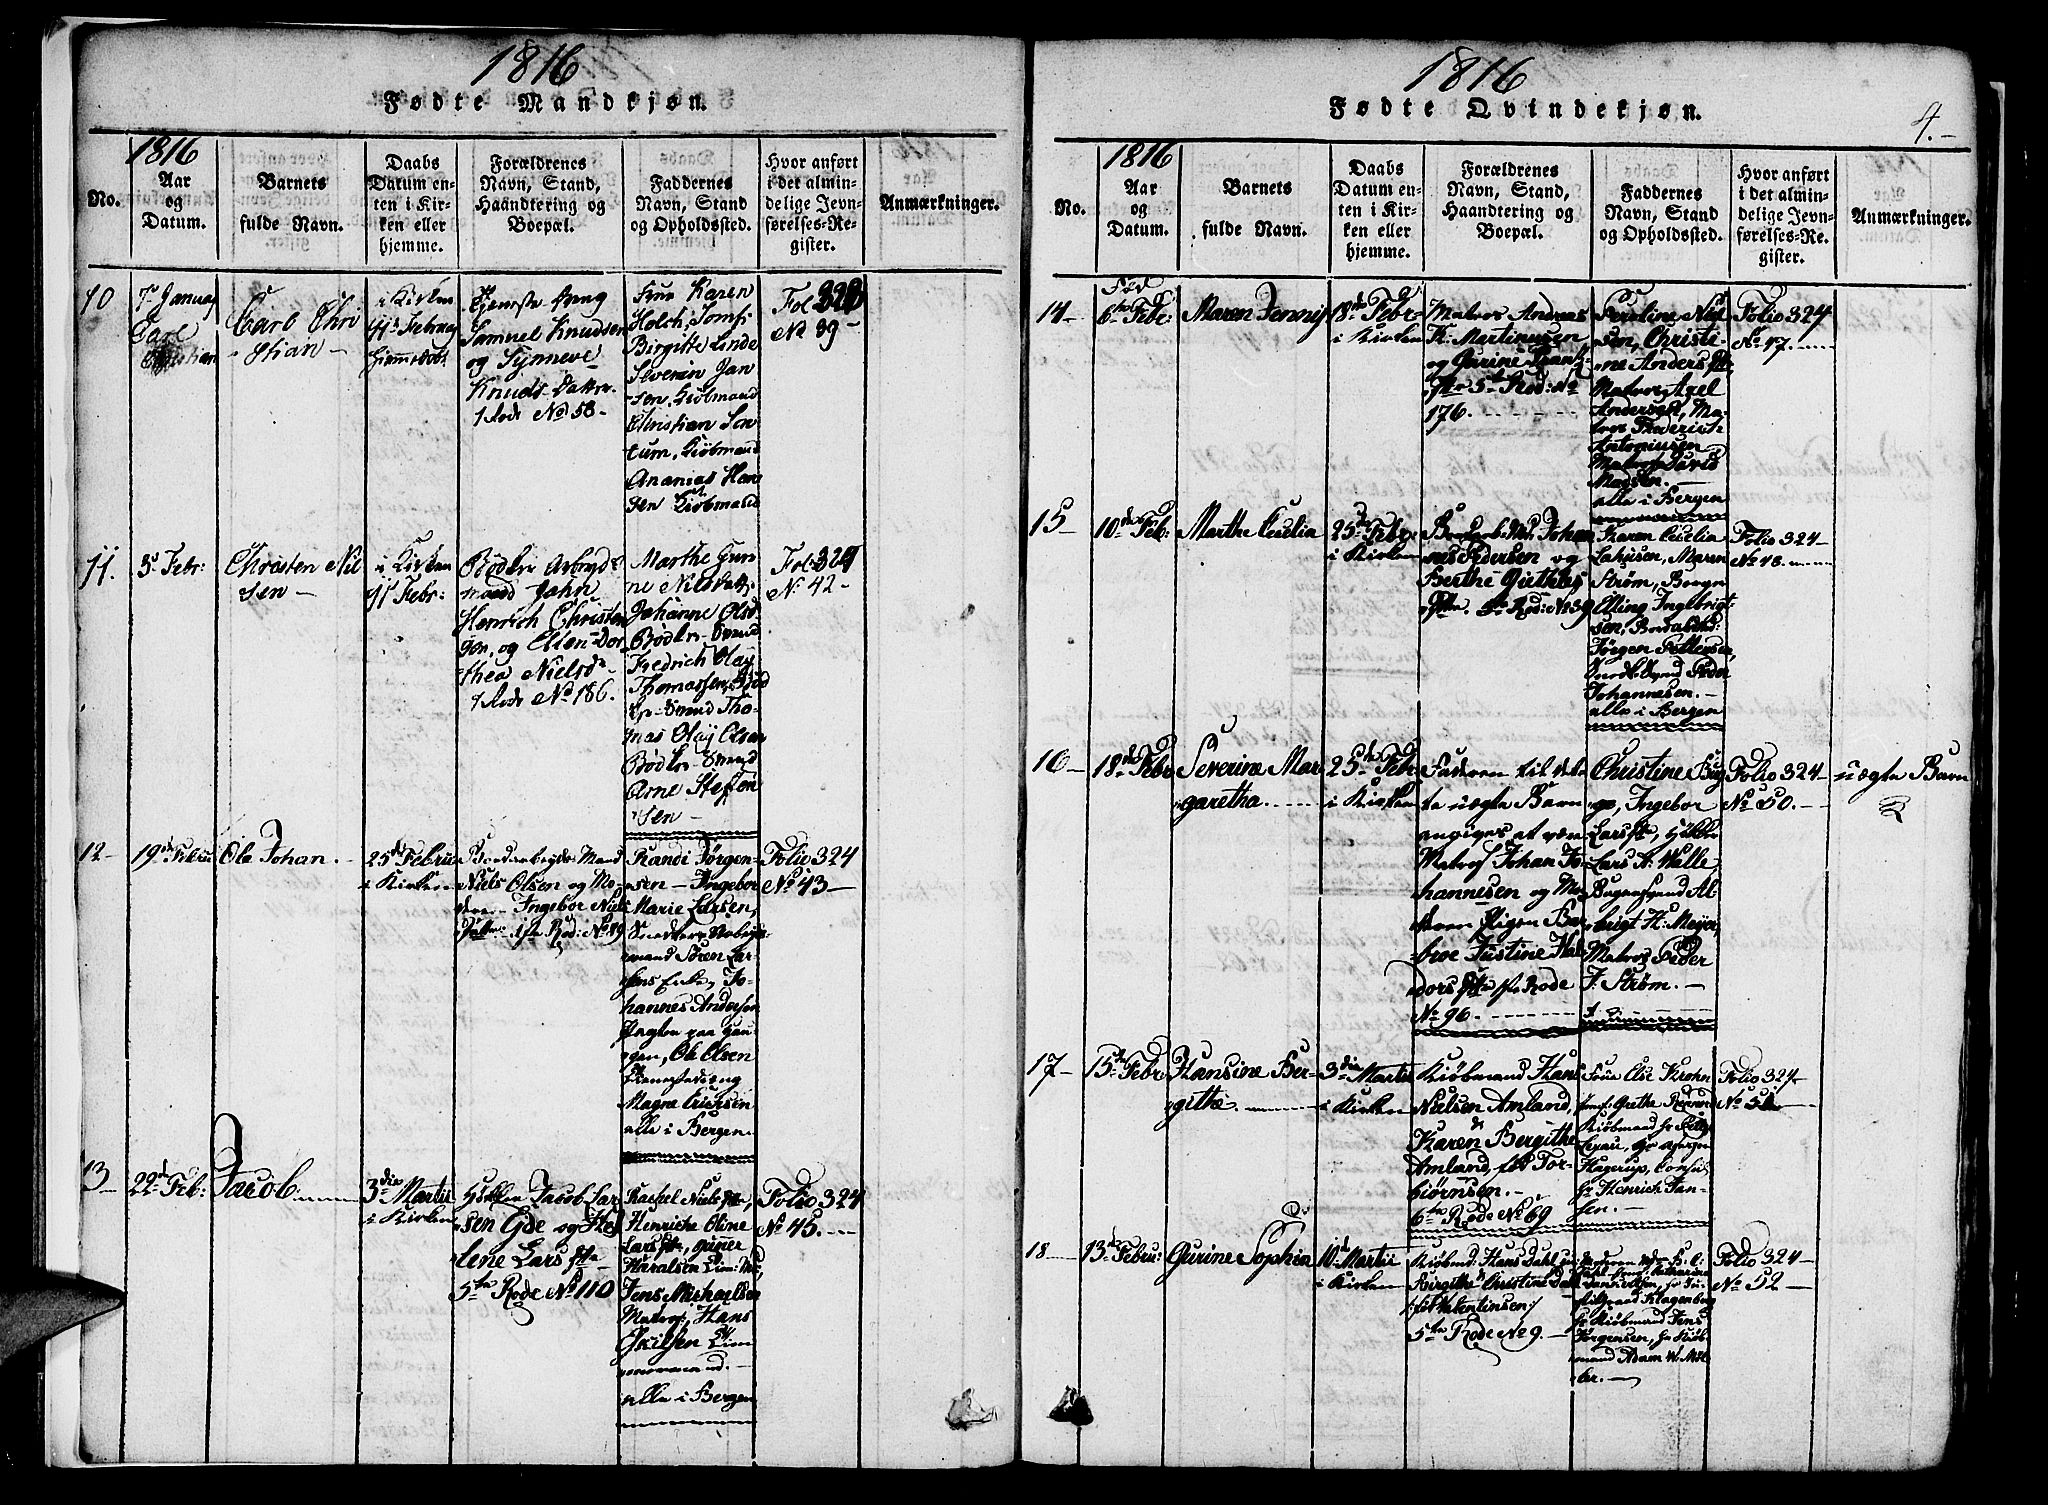 1816
Fødte Mandkjøn.
1816
No.
Aar
og
Datum.
Barnets
fulde Navn.
Daabs
Datum en-
ten i Kir-
ken eller
hjemme.
Forældrenes
Navn, Stand,
Haandtering og
Boepæl.
Faddernes
Navn, Stand
og Opholdssted.
Hvor anført
i det almin-
delige Jevn-
førelses-Re-
gister.
Anmærkninger.
10
7 Januar
Carl
Christian
Carl Chri
stian
i Kirken
11 Februar
Hjemmedøbt
Samuel Knudsen
og Synneve
Knuds Datter
1 Rode No 58
Frue Karen
Holch, Jomf:
Birgitte Linde
Severin Jan
sen, Kiøbmand
Christian Son
tum, Kiøbmand
Ananias Han
sen Kiøbmand
Fol 323
No 39
11.
5 Febr:
Christen Niel
sen
i Kirken
11 Febr:
Bødker Arbeyds
mand John
Henrich Christen
sen, og Ellen Dor
thea Nielsd
1 Rode No 186.
Marthe Gur
ne Nilsdatt,
Johanne Olsd
Bødker-Svend
Fredrich Olay
Thomassen, Bød
ker-Svend Tho-
mas Olay Olsen
Bødker-Svend
Arne Steffen
sen
Fol: 324
No 42
12
19de Febru
Ole Johan.
25de Febru
i Kirken
Bordarbeyds Mand
Niels Olsen og Mo-
deren Ingebor Niels
Datter 1ste Rod: No 89
Randi Jørgen-
sen - Ingebor
Marie Larsen,
mand Søren Lar
sens Enke, Jo-
hannes Andersen
Vagten paa Gan-
gen, Ole Olsen
Tienestedreng
Magne Erichsen
alle i Bergen.
Folio 324
No 43
13
22de Feb:
Jacob
3die Martii
i Kirken
Høkker Jacob Lar
sen Gide og He
lene Lars Dtr
5te Rode No 110
Rachel Niels Dtr,
Henriche Oline
Lars Dtr, Gunner
Haralsen Lim: Md,
Jens Michaelsen
Matros, Hans
alle i Bergen
Folio 324
No 45.
1816
Fødte Qvindekjøn.
4.
1816
No.
Aar
og
Datum.
Barnets
fulde Navn.
Daabs
Datum en-
ten i Kir-
ken eller
hjemme.
Forældrenes
Navn, Stand,
Haandtering og
Boepæl.
Faddernes
Navn, Stand
og Opholdssted.
Hvor anført
i det almin-
delige Jevn-
førelses-Re-
gister.
Anmærkninger.
14
Fød
6te Febr:
Maren Jennij
18de Febr
i Kirken
Matros Andreas
K. Martinusen
og Gurine
Dtr 5te Rod: No
176.
Peroline Niel
sen, Christi-
ne Anders Dtr,
Matros Axel
Andersen, Ma-
tros Frederich
Antoniusen
Matros David
Madsen.
alle i Bergen
Folio 324
No 47.
15
10de Feb:
Marthe Cecelia
25de Febr
i Kirken
Bordarb: Md. Johan
nes Pedersen og
Berthe
Dtr. 5te Rod: No 39
Karen Cecelia
Maren
Strøm,
Elling Ingebrigt
sen,
Jørgen Pettersen,
Peder
Johannesen.
alle i Bergen
Folio 324
No 48.
16
18de Febr
Severine Mar
garetha.
25de Febr
i Kirken
Faderen til det-
te uægte Barn
angives at være
Matros Johan Jo-
hannesen og Mo
deren Pigen Ber
Justine Hal
dors Dtr 1ste Rode
No 96.
Christine Bug
ge, Ingebor
Lars Dtr, Høkker
Lars J. Walle,
Bugersvend Al-
brigt H. Meyer,
Matros Peder
J. Strøm.
Folio 324
No 50.
uægte Barn
17
15de Febr
Hansine Ber-
githe.
3die Martii
i Kirken
Kiøbmand Hans
Nielsen Amland,
Karen Bergithe
Amland, fød Tor-
biørnsen.
6te Rode No 69
Frue Else Krohn
Jomf: Grethe
Kiøbmand hr
Hagerup, Consul
hr Henrich Jan-
sen.
Folio 324
No 51
18
13de Febru:
Gurine Sophia
10de Martii
i Kirken
Kiøbmd Hans Dahl
Birgithe Christine Dahl
/: fød Valentinsen :/
5te Rode No 9.
Klagenberg
hr Kiøbmand Jens
Jørgensen, hr Kiøb
mand Adam W. Mül
ler.
Folio 324
No 52